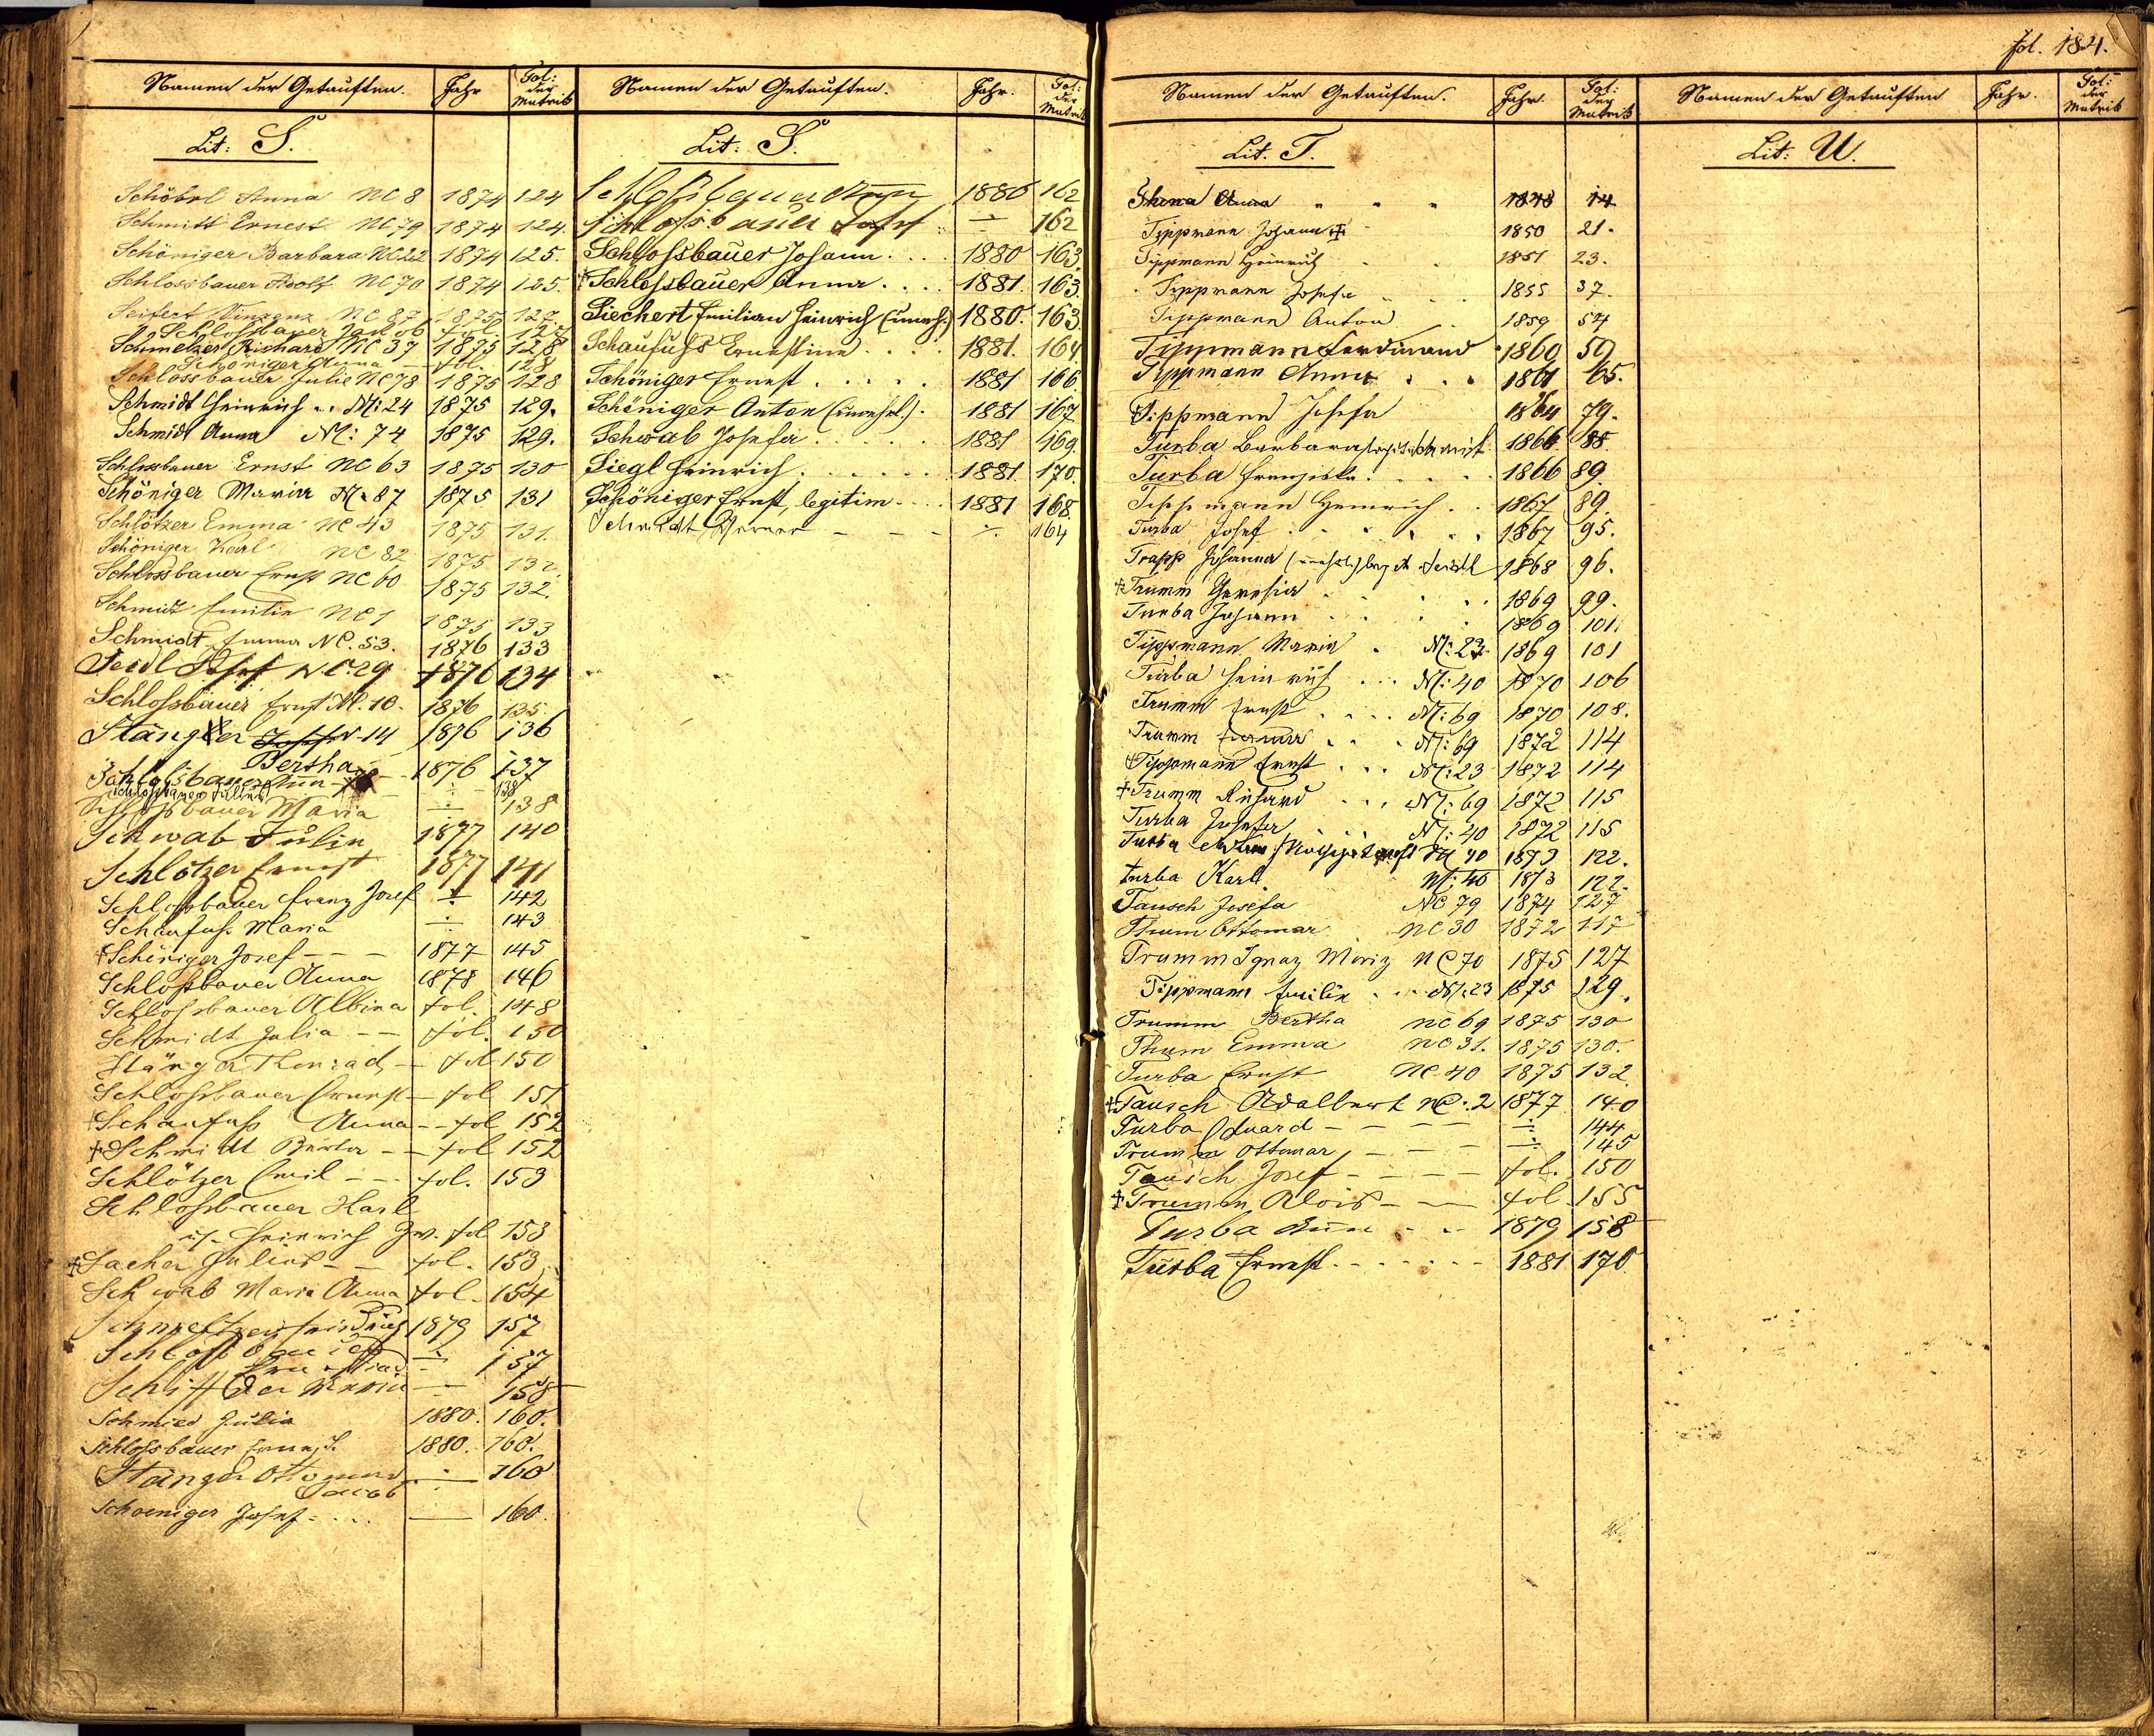 Namen der Getauften. Jahr Fol: der Matrik
Lit: S.
Schöbel Anna NC 8 1874 124
Schmidt Ernest NC 79 1874 124.
Schöniger Barbara NC 22 1874 125.
Schlossbauer Adolf NC 70 1874 125.
Seifert Vinzenz NC 87 1875 127.
Schlossbauer Jakob fol. 127
Schmelzer Richard NC 37 1875 128
Schöniger Anna fol. 128
Schlossbauer Julie NC 78 1875 128
Schmidt Heinrich .. N: 24 1875 129.
Schmidt Anna N: 74 1875 129.
Schlossbauer Ernst NC 63 1875 130
Schöniger Maria N: 87 1875 131
Schlötzer Emma NC 43 1875 131.
Schöniger Karl NC 82 1875 132.
Schlossbauer Ernst NC 60 1875 132.
Schmidt Emilie NC 1 1875 133
Schmidt Emma NC. 53. 1876 133
Seidl Josef NC. 29 1876 134
Schloßbauer Ernst N. 10. 1876 135
Stänger N. 14 1876 136
Bertha
Schloßbauer 1876 137
Schloßbauer Julius ÷ 138
Schloßbauer Maria ÷ 138
Schwab Julia 1877 140
Schlötzer Ernest 1877 141
Schloßbauer Franz Josef ÷ 142
Schaufuß Maria ÷ 143
† Schöniger Josef - - - 1877 145
Schloßbauer Anna 1878 146
Schloßbauer Albina fol. 148
Schmidt Julia - - fol. 150
Stänger Konrad - fol. 150
Schloßbauer Ernest - fol 151
† Schaufuß Anna - - fol 152
† Schmidt Berta - - fol 152
Schlötzer Emil - - - fol. 153
Schloßbauer Karl
u. Heinrich Zw. fol 153
† Sacher Julius - - fol. 153
Schwab Maria Anna fol. 154
Schmeltzer Friedrich 1879 157
Schloßbauer ÷ 157
Maria 158
Schmied Julia 1880. 160.
Schlossbauer Ernest. 1880. 160.
Stänger Ottomar ÷ 160
Jacob
Schoeniger Josef - . . . — 160.
Namen der Getauften. Jahr. Fol: der Matrik
Lit: S.
Schloßbauer Ann 1880 162
Schlossbauer Josef ÷ 162
Schloßbauer Johann. . . . 1880 163.
† Schloßbauer Anna . . . . 1881. 163.
Siechert Emilian Heinrich (unehl.) 1880. 163.
Schaufuß Ernestine . . . . 1881. 164.
Schöniger Ernest . . . . . 1881 166
Schöniger Anton (unehel.). 1881 167
Schwab Josefa . . . . . 1881 169.
Siegl Heinrich. . . . . . . 1881 170.
Schöniger Ernst, legitim. . . . 1881 168.
Schmidt Werner - - - ÷ 164
fol. 184.
Namen der Getauften. Jahr. Fol: der Matrik
Lit. T.
Thuma Anna " " " 1848 14
Tippmann Johann † 1850 21.
Tippmann Heinrich . . 1851 23.
Tippmann Josefa . . . 1855 37.
Tippmann Anton . . 1859 54
Tippmann Ferdinand 1860 59
Tippmann Anna . . . 1861 65.
† Tippmann Josefa 1864 79.
Turba Barbara 1866 88.
Turba Franziska. . . . 1866 89.
Tippmann Heinrich . . 1867 89.
Turba Josef . . . . . . 1867 95.
Trapp Johanna (unehel.) Seidl 1868 96.
† Trumm Theresia . . . . 1869 99.
Turba Johann . . . . 1869 101.
Tippmann Maria . N: 23 1869 101
Turba Heinrich . . . N: 40 1870 106
Trumm Ernst . . . . N: 69 1870 108.
Trumm Emma . . . N: 69 1872 114
† Tippmann Ernst . . . N: 23 1872 114
† Trumm Richard . . . N: 69 1872 115
Turba Josefa N: 40 1872 115
Turba N 40 1873 122.
Turba Karl. N: 40 1873 122.
Tausch Josefa NC 79 1874 127
Thum Ottomar NC 30 1872 117
Trumm Ignaz Moriz NC 70 1875 127
Tippmann Emilie . . . N: 23 1875 129.
Trumm Bertha NC 69 1875 130
Thum Emma NC 31. 1875 130.
Turba Ernst NC 40 1875 132.
† Tausch Adalbert NC. 2 1877 140
Turba Eduard - - - - ÷ 144
Trumm Ottomar - - - ÷ 145
Tausch Josef - - - - fol. 150
† Trumm Alois - - - fol. 155
Turba Anna - - - 1879 158
Turba Ernest. - - - - - - 1881 170
Namen der Getauften Jahr. Fol: der Matrik
Lit: U.